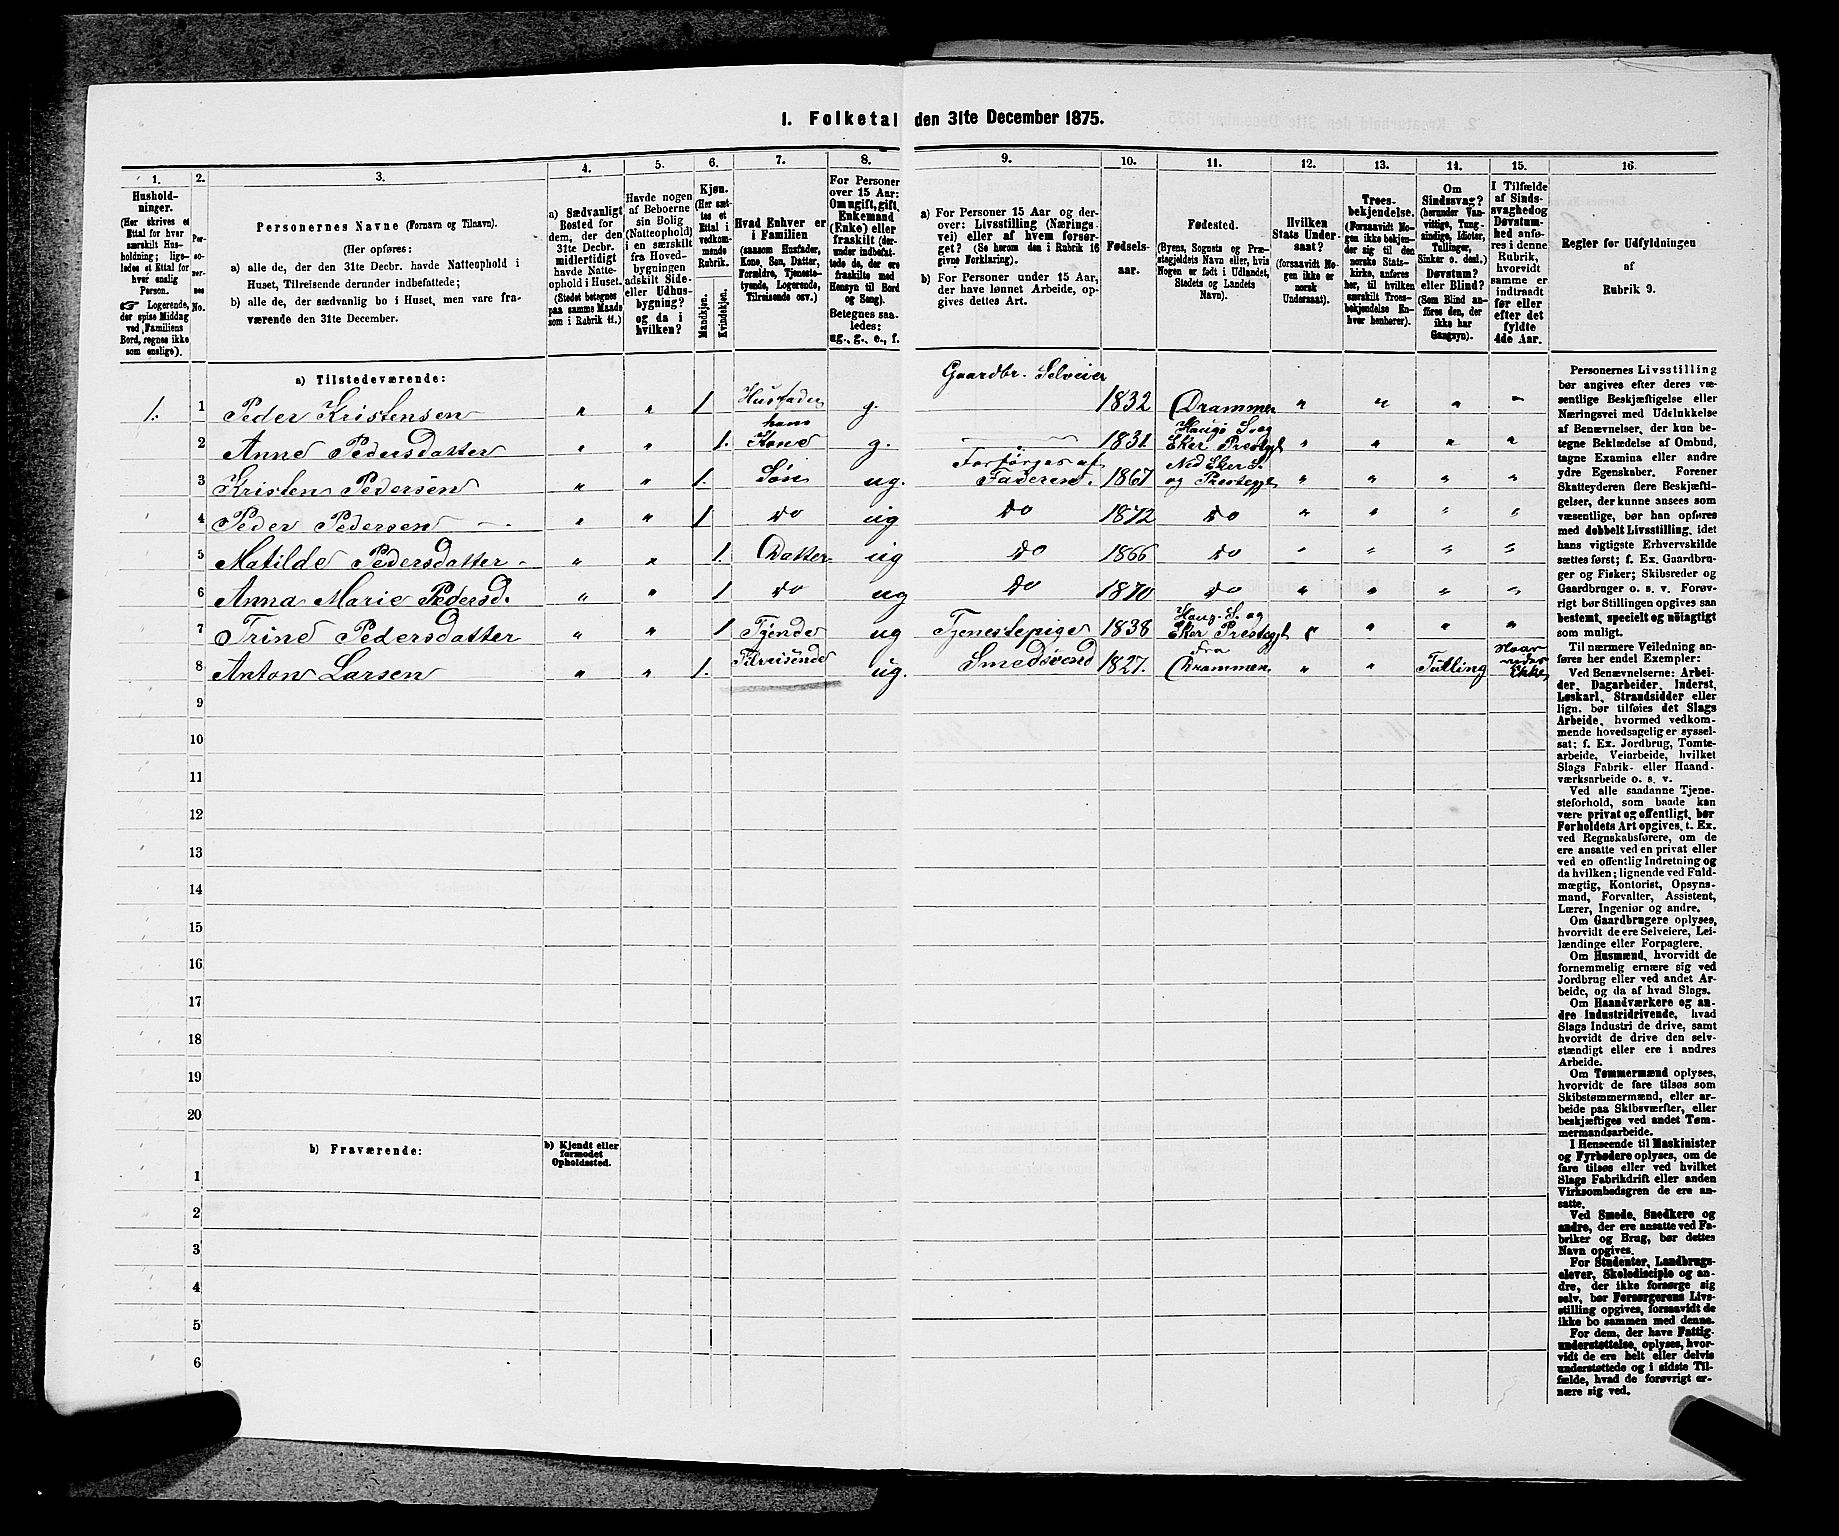 1. Folketal den 31te December 1875.
1. 2. 3. 4. 5. 6. 7. 8. 9. 10. 11. 12. 13. 14. 15. 16.
Hushold-
ninger.
(Her skrives et
Ettal for hver
særskilt Hus-
holdning; lige-
ledes et Ettal for
hver enslig
Person.
☞ Logerende,
der spise Middag
ved Familiens
Bord, regnes ikke
som enslige).
Per-
so-
ner-
nes
No.
Personernes Navne (Fornavn og Tilnavn).
(Her opføres:
a) alle de, der den 31te Decbr. havde Natteophold i
Huset, Tilreisende derunder indbefattede;
b) alle de, der sædvanlig bo i Huset, men vare fra-
værende den 31te December.
a) Sædvanligt
Bosted for
dem, der den
31te Decbr.
midlertidigt
havde Natte-
ophold i Huset.
(Stedet betegnes
paa samme Maade
som i Rubrik 11.)
Havde nogen
af Beboerne
sin Bolig
(Natteophold)
i en særskilt
fra Hoved-
bygningen
adskilt Side-
eller Udhus-
bygning?
og da i
hvilken?
Kjøn.
(Her sæt-
tes et
Ettal i
vedkom-
mende
Rubrik.
Mandkjøn.
Kvindekjøn.
Hvad Enhver er
i Familien
(saasom Husfader,
Kone, Søn, Datter,
Forældre, Tjeneste-
tyende, Logerende,
Tilreisende osv.)
For Personer
over 15 Aar:
Om ugift, gift,
Enkemand
(Enke) eller
fraskilt (der-
under indbefat-
tede de, der ere
fraskilte med
Hensyn til Bord
og Seng).
Betegnes saa-
ledes:
ug., g., e., f.
a) For Personer 15 Aar og der-
over: Livsstilling (Nærings-
vei) eller af hvem forsør-
get? (Se herom den i Rubrik 16
givne Forklaring).
b) For Personer under 15 Aar,
der have lønnet Arbeide, op-
gives dettes Art.
Fødsels-
aar.
Fødested.
(Byens, Sognets og Præ-
stegjeldets Navn eller, hvis
Nogen er født i Udlandet,
Stedets og Landets
Navn).
Hvilken
Stats Under-
saat?
(forsaavidt No-
gen ikke er
norsk
Undersaat).
Troes-
bekjendelse.
(Forsaavidt No-
gen ikke bekjen-
der sig til den
norske Stats-
kirke, anføres
her, til hvilken
særskilt Troes-
bekjendelse En-
hver henhører).
Om
Sindssvag?
(herunder Van-
vittige, Tung-
sindige, Idioter,
Tullinger,
Sinker o. desl.)
Døvstum?
eller Blind?
(Som Blind an-
føres den, der
ikke har
Gangsyn).
I Tilfælde
af Sinds-
svaghed og
Døvstum-
hed anfø-
res i denne
Rubrik,
hvorvidt
samme er
indtraadt
før eller
efter det
fyldte
4de Aar.
Regler for Udfyldningen
af
Rubrik 9.
a) Tilstedeværende:
1. 1 Peder Kristensen „ „ 1 Husfader g. Gaardbr. Selveier 1832 Drammen „ „ „ „
2 Anne Pedersdatter „ „ 1. hans Kone g. — 1831 Eker Prestegjl „ „ „ „
3 Kristen Pedersen „ „ 1. Søn ug. Forsørges af Faderen. 1867 Ned Eker S. og Prestegjl „ „ „ „
4 Peder Pedersen „ „ 1 Do ug Do 1872 Do „ „ „ „
5 Matilde Pedersdatter „ „ 1. Datter ug Do 1866 Do „ „ „ „
6 Anna Marie Pedersd. „ „ 1 Do ug Do 1870 Do „ „ „ „
7 Trine Pedersdatter „ „ 1 Tjende ug Tjenestepige 1838 Haug S. og Eker Prestegjl „ „ „ „
8 Anton Larsen „ „ 1. Tilreisende ug. Smedsvend 1827. fra Drammen „ „ Tulling
9
10
11
12
13
14
15
16
17
18
19
20
b) Fraværende:
b) Kjendt eller
formodet
Opholdssted.
1
2
3
4
5
6
Personernes Livsstilling
bør angives efter deres væ-
sentlige Beskjæftigelse eller
Næringsvei med Udelukkelse
af Benævnelser, der kun be-
tegne Beklædelse af Ombud,
tagne Examina eller andre
ydre Egenskaber. Forener
Skatteyderen flere Beskjæfti-
gelser, der kunne ansees som
væsentlige, bør han opføres
med dobbelt Livsstilling, idet
hans vigtigste Erhvervskilde
sættes først; f. Ex. Gaardbru-
ger og Fisker; Skibsreder og
Gaardbruger o. s. v. Forøv-
rigt bør Stillingen opgives saa
bestemt, specielt og nöiagtigt
som muligt.
Til nærmere Veiledning an-
føres her endel Exempler:
Ved Benævnelserne: Arbei-
der, Dagarbeider, Inderst,
Løskarl, Strandsidder eller
lign. bør tilføies det Slags
Arbeide, hvormed vedkom-
mende hovedsagelig er syssel-
sat; f. Ex. Jordbrug, Tomte-
arbeide, Veiarbeide, hvilket
Slags Fabrik- eller Haand-
værksarbeide o. s. v.
Ved alle saadanne Tjene-
steforhold, som baade kan
være privat og offentligt, bør
Forholdets Art opgives, t. Ex.
ved Regnskabsførere, om de
ere ansatte ved en privat eller
ved en offentlig Indretning og
da hvilken; lignende ved Fuld-
mægtig, Kontorist, Opsyns-
mand, Forvalter, Assistent,
Lærer, Ingeniør og andre.
Om Gaardbrugere oplyses,
hvorvidt de ere Selveiere, Lei-
lændinge eller Forpagtere.
Om Husmænd, hvorvidt de
fornemmelig ernære sig ved
Jordbrug eller ved andet Ar-
beide, og da af hvad Slags.
Om Haandværkere og an-
dre Industridrivende, hvad
Slags Industri de drive, samt
hvorvidt de drive den selv-
stændigt eller ere i andres
Arbeide.
Om Tømmermænd oplyses,
hvorvidt de fare tilsøs som
Skibstømmermænd, eller ar-
beide paa Skibsværfter, eller
beskjæftiges ved andet Tøm-
mermandsarbeide.
I Henseende til Maskinister
og Fyrbødere oplyses, om de
fare tilsøs eller ved hvilket
Slags Fabrikdrift eller anden
Virksomhedsgren de ere an-
satte.
Ved Smede, Snedkere og
andre, der ere ansatte ved Fa-
briker og Brug, bør dettes
Navn opgives.
For Studenter, Landbrugs-
elever, Skoledisciple og an-
dre, der ikke forsørge sig
selv, bør Forsørgerens Livs-
stilling opgives, forsaavidt de
ikke bo sammen med denne.
For dem, der have Fattig-
understøttelse, oplyses, hvor-
vidt de ere helt eller delvis
understøttede og i sidste Til-
fælde, hvad de forøvrigt er-
nære sig ved.